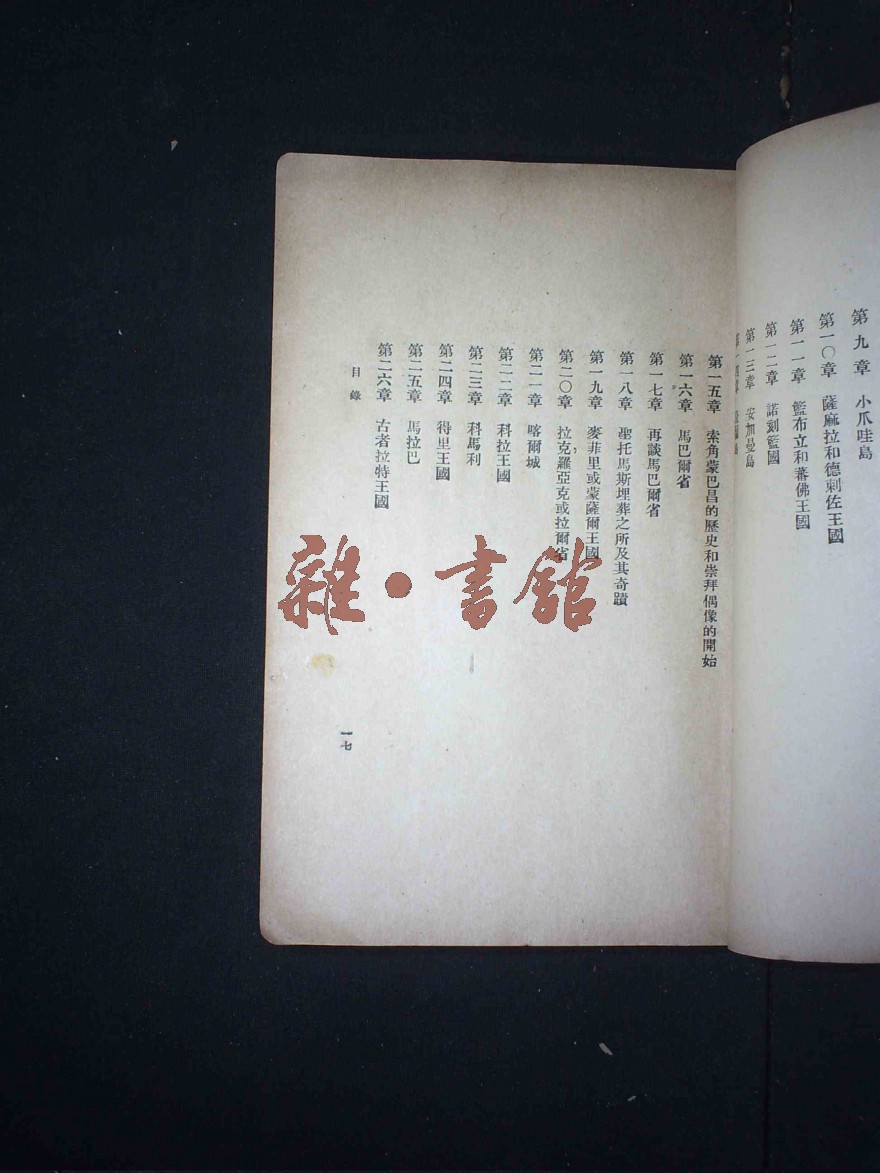 第九章　小爪哇島
第一〇章　薩麻拉和德剌佐王國
第一一章　籃布立和蕃佛王國
第一二章　諾刻籃國
第一三章　安加曼島
第一四章　島
第一五章　索角蒙巴昌的歷史和崇拜偶像的開始
第一六章　馬巴爾省
第一七章　再談馬巴爾省
第一八章　聖托馬斯埋葬之所及其奇蹟
第一九章　麥菲里或蒙薩爾王國
第二〇章　拉克羅亞克或拉爾省
第二一章　喀爾城
第二二章　科拉王國
第二三章　科馬利
第二四章　得里王國
第二五章　馬拉巴
第二六章　古者拉特王國
目錄
一七
雜·書館